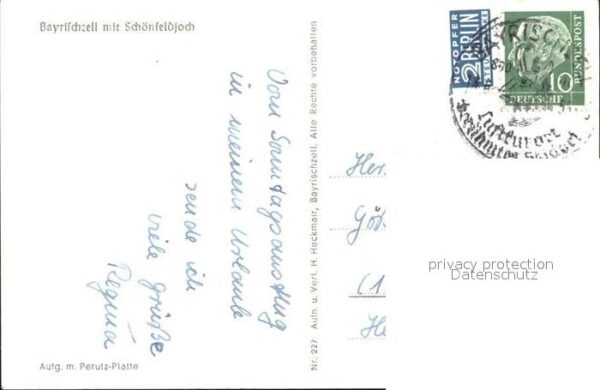 Bayrischzell mit Schönfeldjoch
Vom Sonntagsausflug
in meinem Urlaube
sende ich
viele grüße
Regina
Aufg. m. Perutz-Platte
Nr. 227 Aufn. u. Verl. H. Heckmair, Bayrischzell. Alle Rechte vorbehalten
NOTOPFER
2 BERLIN
STEUERMARKE
10
DEUTSCHE
BUNDESPOST
BAYRISCH
Luftkurort
Her
Gö
(1
He
privacy protection
Datenschutz